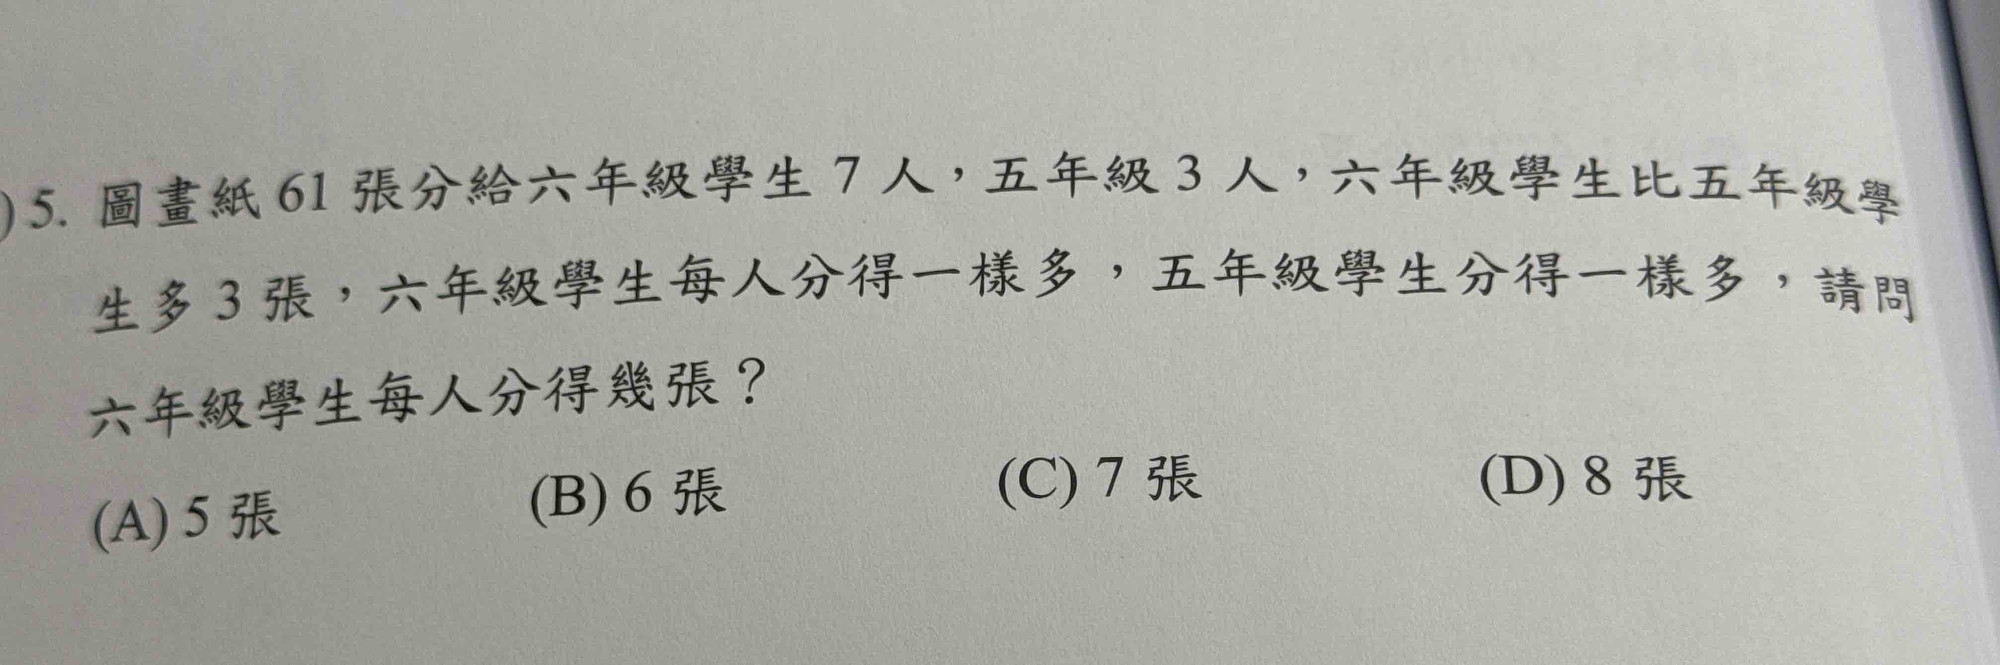 )5. 圖畫紙 61 張分給六年級學生 7 人，五年級 3 人，六年級學生比五年級學
生多 3 張，六年級學生每人分得一樣多，五年級學生分得一樣多，請問
六年級學生每人分得幾張？
(A) 5 張 (B) 6 張 (C) 7 張 (D) 8 張